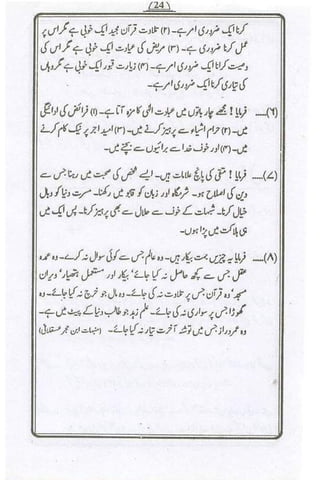 (24)
کرنا ایک ضروری امر ہے۔ (۲) تلاوت قرآن مجید ایک خوبی ہے مگر اس پر
عمل کرنا ایک ضروری امر ہے۔ (۳) مریض کی عیادت ایک خوبی ہے مگر اس کی
وصیت کرانا ایک ضروری امر ہے۔ (۴) زیارت قبور ایک خوبی ہے مگر وہاں
کی تیاری کرنا ایک ضروری امر ہے۔
(۶)..... فرمایا! مجھے چار باتوں میں عبادت الٰہی کا مزہ آتا ہے۔ (۱) فرائض کی ادائیگی
میں۔ (۲) حرام اشیاء سے پرہیز کرنے میں۔ (۳) امید اجر پر نیک کام کرنے
میں۔ (۴) اور خوف خدا سے برائیوں سے بچنے میں۔
(۷)..... فرمایا! متقی کی پانچ علامات ہیں۔ ایسے شخص کی صحبت میں رہنا جس سے
دین کی اصلاح ہو۔ شرمگاہ اور زبان کو قابو میں رکھنا۔ مسرت دنیا کو وبال
خیال کرنا۔ شبہات کے خوف سے حلال سے بھی پرہیز کرنا۔ پس ایک میں
ہی ہلاکت میں پڑا ہوں۔
(۸)..... فرمایا یہ چیزیں بہت بیکار ہیں۔ وہ عالم جس سے کوئی سوال نہ کرے۔ وہ عمدہ
عقل جس سے کچھ حاصل نہ کیا جائے' بیکار اور مستعمل ہتھیار' ویران
مسجد' وہ قرآن جس پر تلاوت نہ کی جائے۔ وہ مال جو خرچ نہ کیا جائے۔ وہ
گھوڑا جس پر سواری نہ کی جائے۔ علم زہد جو طالب دنیا کے پیٹ میں ہے۔
وہ عمر دراز جس میں توشہ آخرت تیار نہ کیا جائے۔ (منبہات ابن حجر عسقلانی)